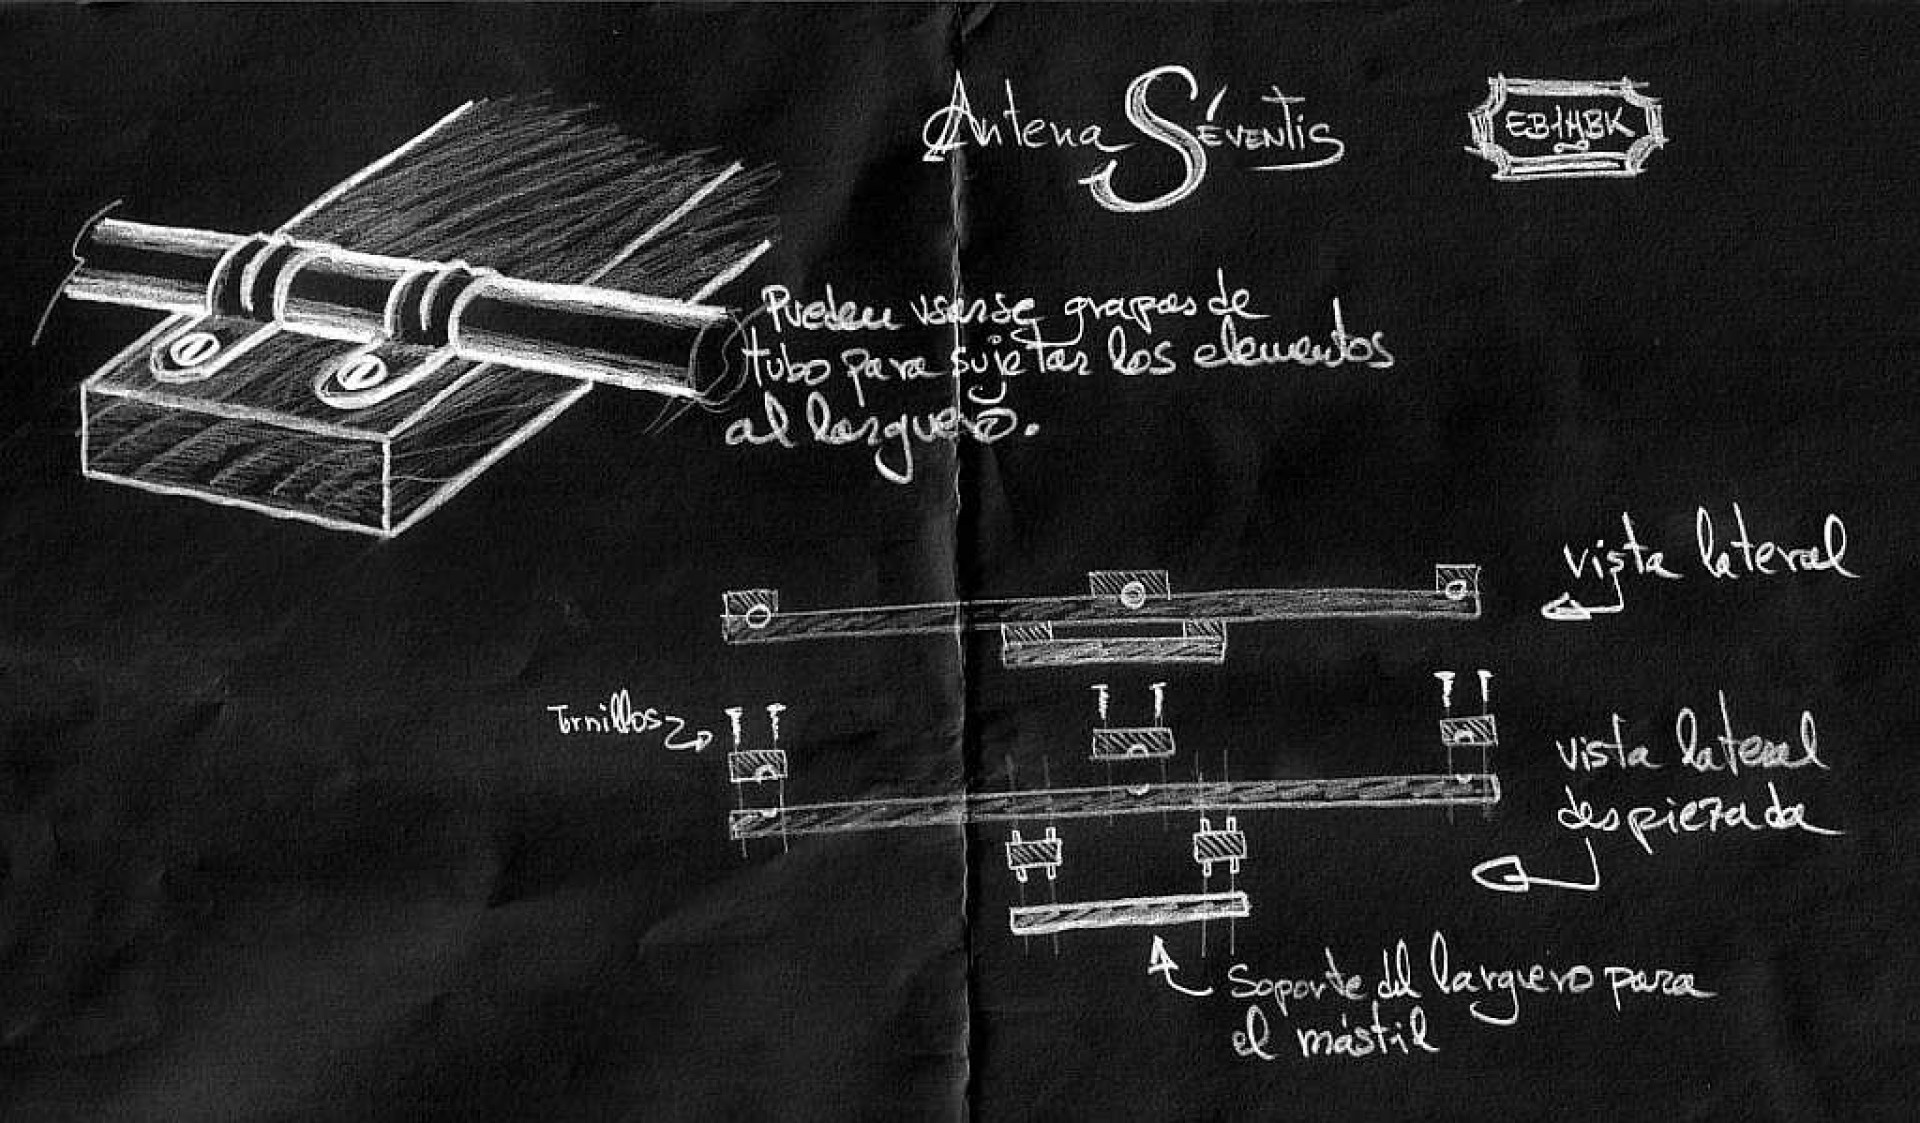 Antena Séventis
EB1HBK
Pueden usarse grapas de
tubo para sujetar los elementos
al larguero.
vista lateral
Tornillos
vista lateral
despiezada
Soporte del larguero para
el mástil